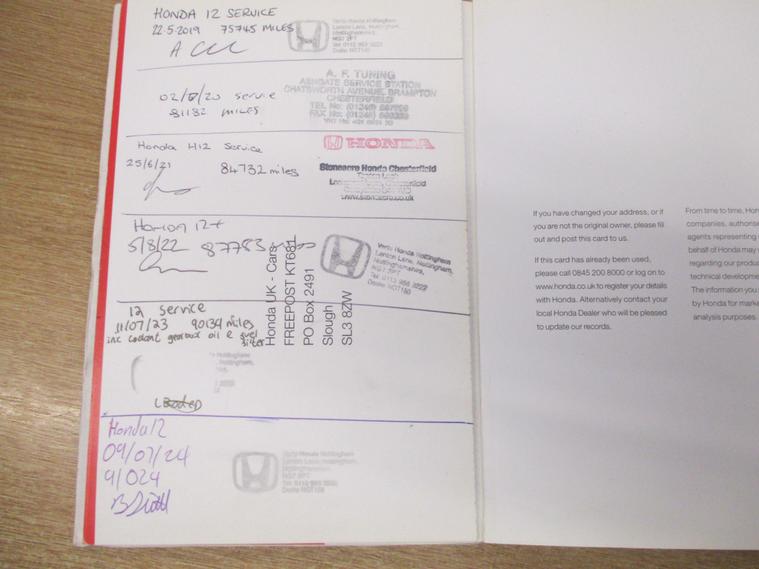 HONDA 12 SERVICE
22.5.2019 75745 MILES
Verto Honda Nottingham
Lenton Lane, Nottingham,
Nottinghamshire,
NG7 2PT
A. F. TUNING
ASHGATE SERVICE STATION
CHATSWORTH AVENUE, BRAMPTON
CHESTERFIELD
service
81132 MILES
HONDA
Honda H12 Service
25/6/21 84732 miles
Stoneacre Honda Chesterfield
www.stoneacre.co.uk
Honda 12+
5/8/22 87783
Vertu Honda Nottingham
Lenton Lane, Nottingham,
Nottinghamshire,
NG7 2PT
Honda UK - Cars
FREEPOST KT661
PO Box 2491
Slough
SL3 8ZW
12 service
11/07/23 90134 miles
inc coolant gearbox oil & fuel
filter
Honda 12
09/07/24
91024
Vertu Honda Nottingham
Lenton Lane, Nottingham,
Nottinghamshire,
NG7 2PT
If you have changed your address, or if
you are not the original owner, please fill
out and post this card to us.
If this card has already been used,
please call 0845 200 8000 or log on to
www.honda.co.uk to register your details
with Honda. Alternatively contact your
local Honda Dealer who will be pleased
to update our records.
From time to time, Hon
companies, authoris
agents representing
behalf of Honda may
regarding our produ
technical developme
The information you
by Honda for marke
analysis purposes.